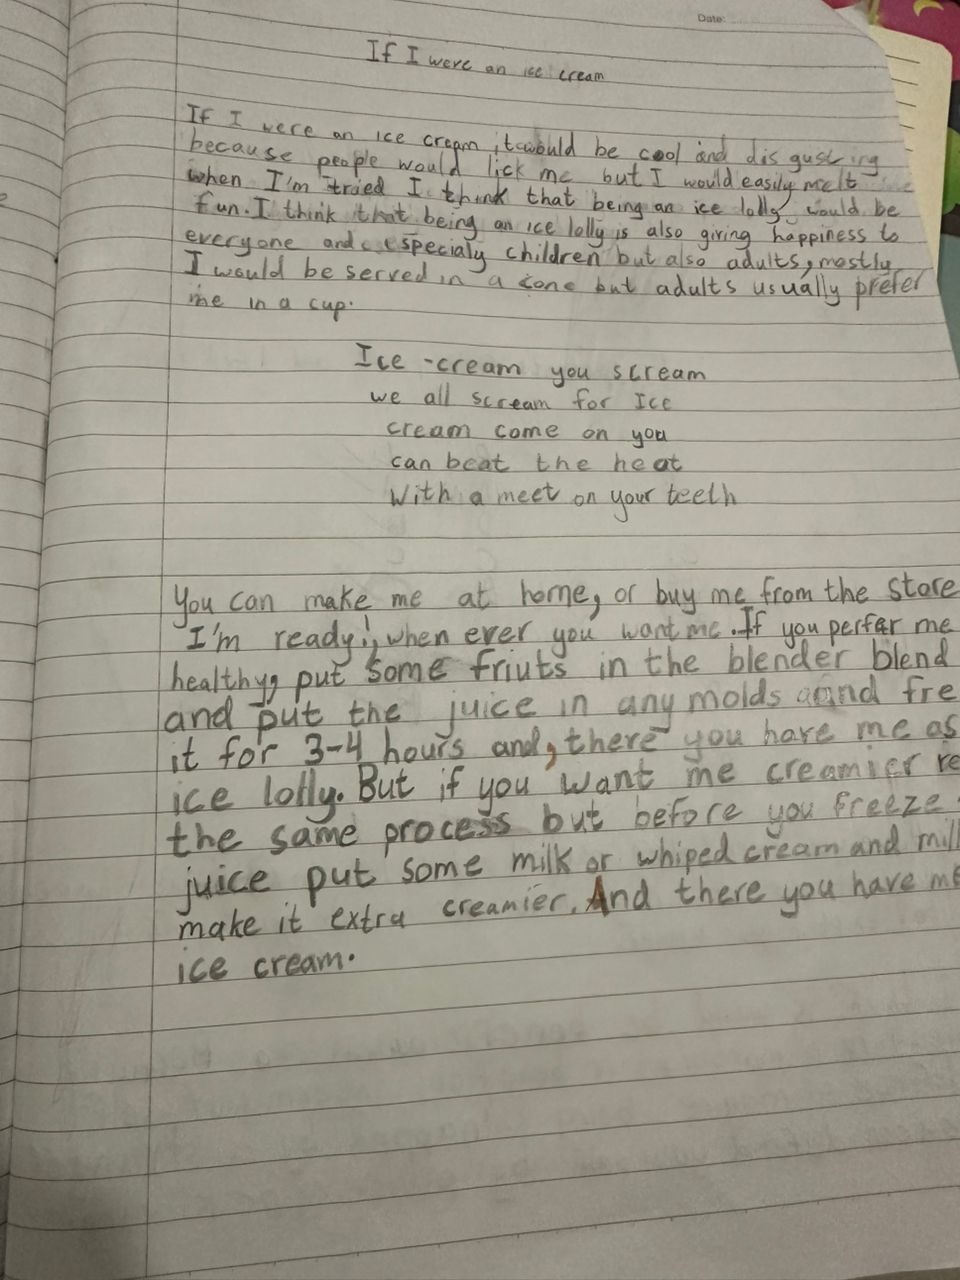 Date:
If I were an ice cream
If I were an ice cream, it would be cool and disgusting
because people would lick me but I would easily melt
when I'm tried I think that being an ice lolly would be
fun. I think that being an ice lolly is also giving happiness to
everyone and especialy children but also adults, mostly
I would be served in a cone but adults usually prefer
me in a cup.
Ice-cream you scream
we all scream for Ice
cream come on you
can beat the heat
With a meet on your teeth
You can make me at home, or buy me from the store
I'm ready! when ever you want me. If you perfer me
healthy, put some friuts in the blender blend
and put the juice in any molds and fre
it for 3-4 hours and, there you have me as
ice lolly. But if you want me creamier re
the same process but before you freeze
juice put some milk or whiped cream and mil
make it extra creamier. And there you have me
ice cream.